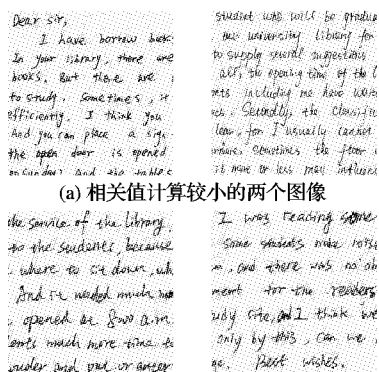 Dear Sir,
I have borrow books
In your library, there are
books. But there are
to study. Sometimes, it
efficiently. I think you
And you can place a sign
the open door is opened
on sunday and the tables
student who will be gradua
our university library for
to supply several suggestions
all, the opening time of the l
nts including me have
cs. Secondly, the classific
lear, for I usually cannot
where. Sometimes the floor
it more or less may influenc
(a) 相关值计算较小的两个图像
the service of the library
to the students, because
, where to sit down, wh
And it wasted much
, opened at 8:00 a.m.
ents much more time to
order and put or
I was reading some
some students make nois
m, and there was no
ment for the readers
udy site, and I think we
only by this, can we
ge. Best wishes.